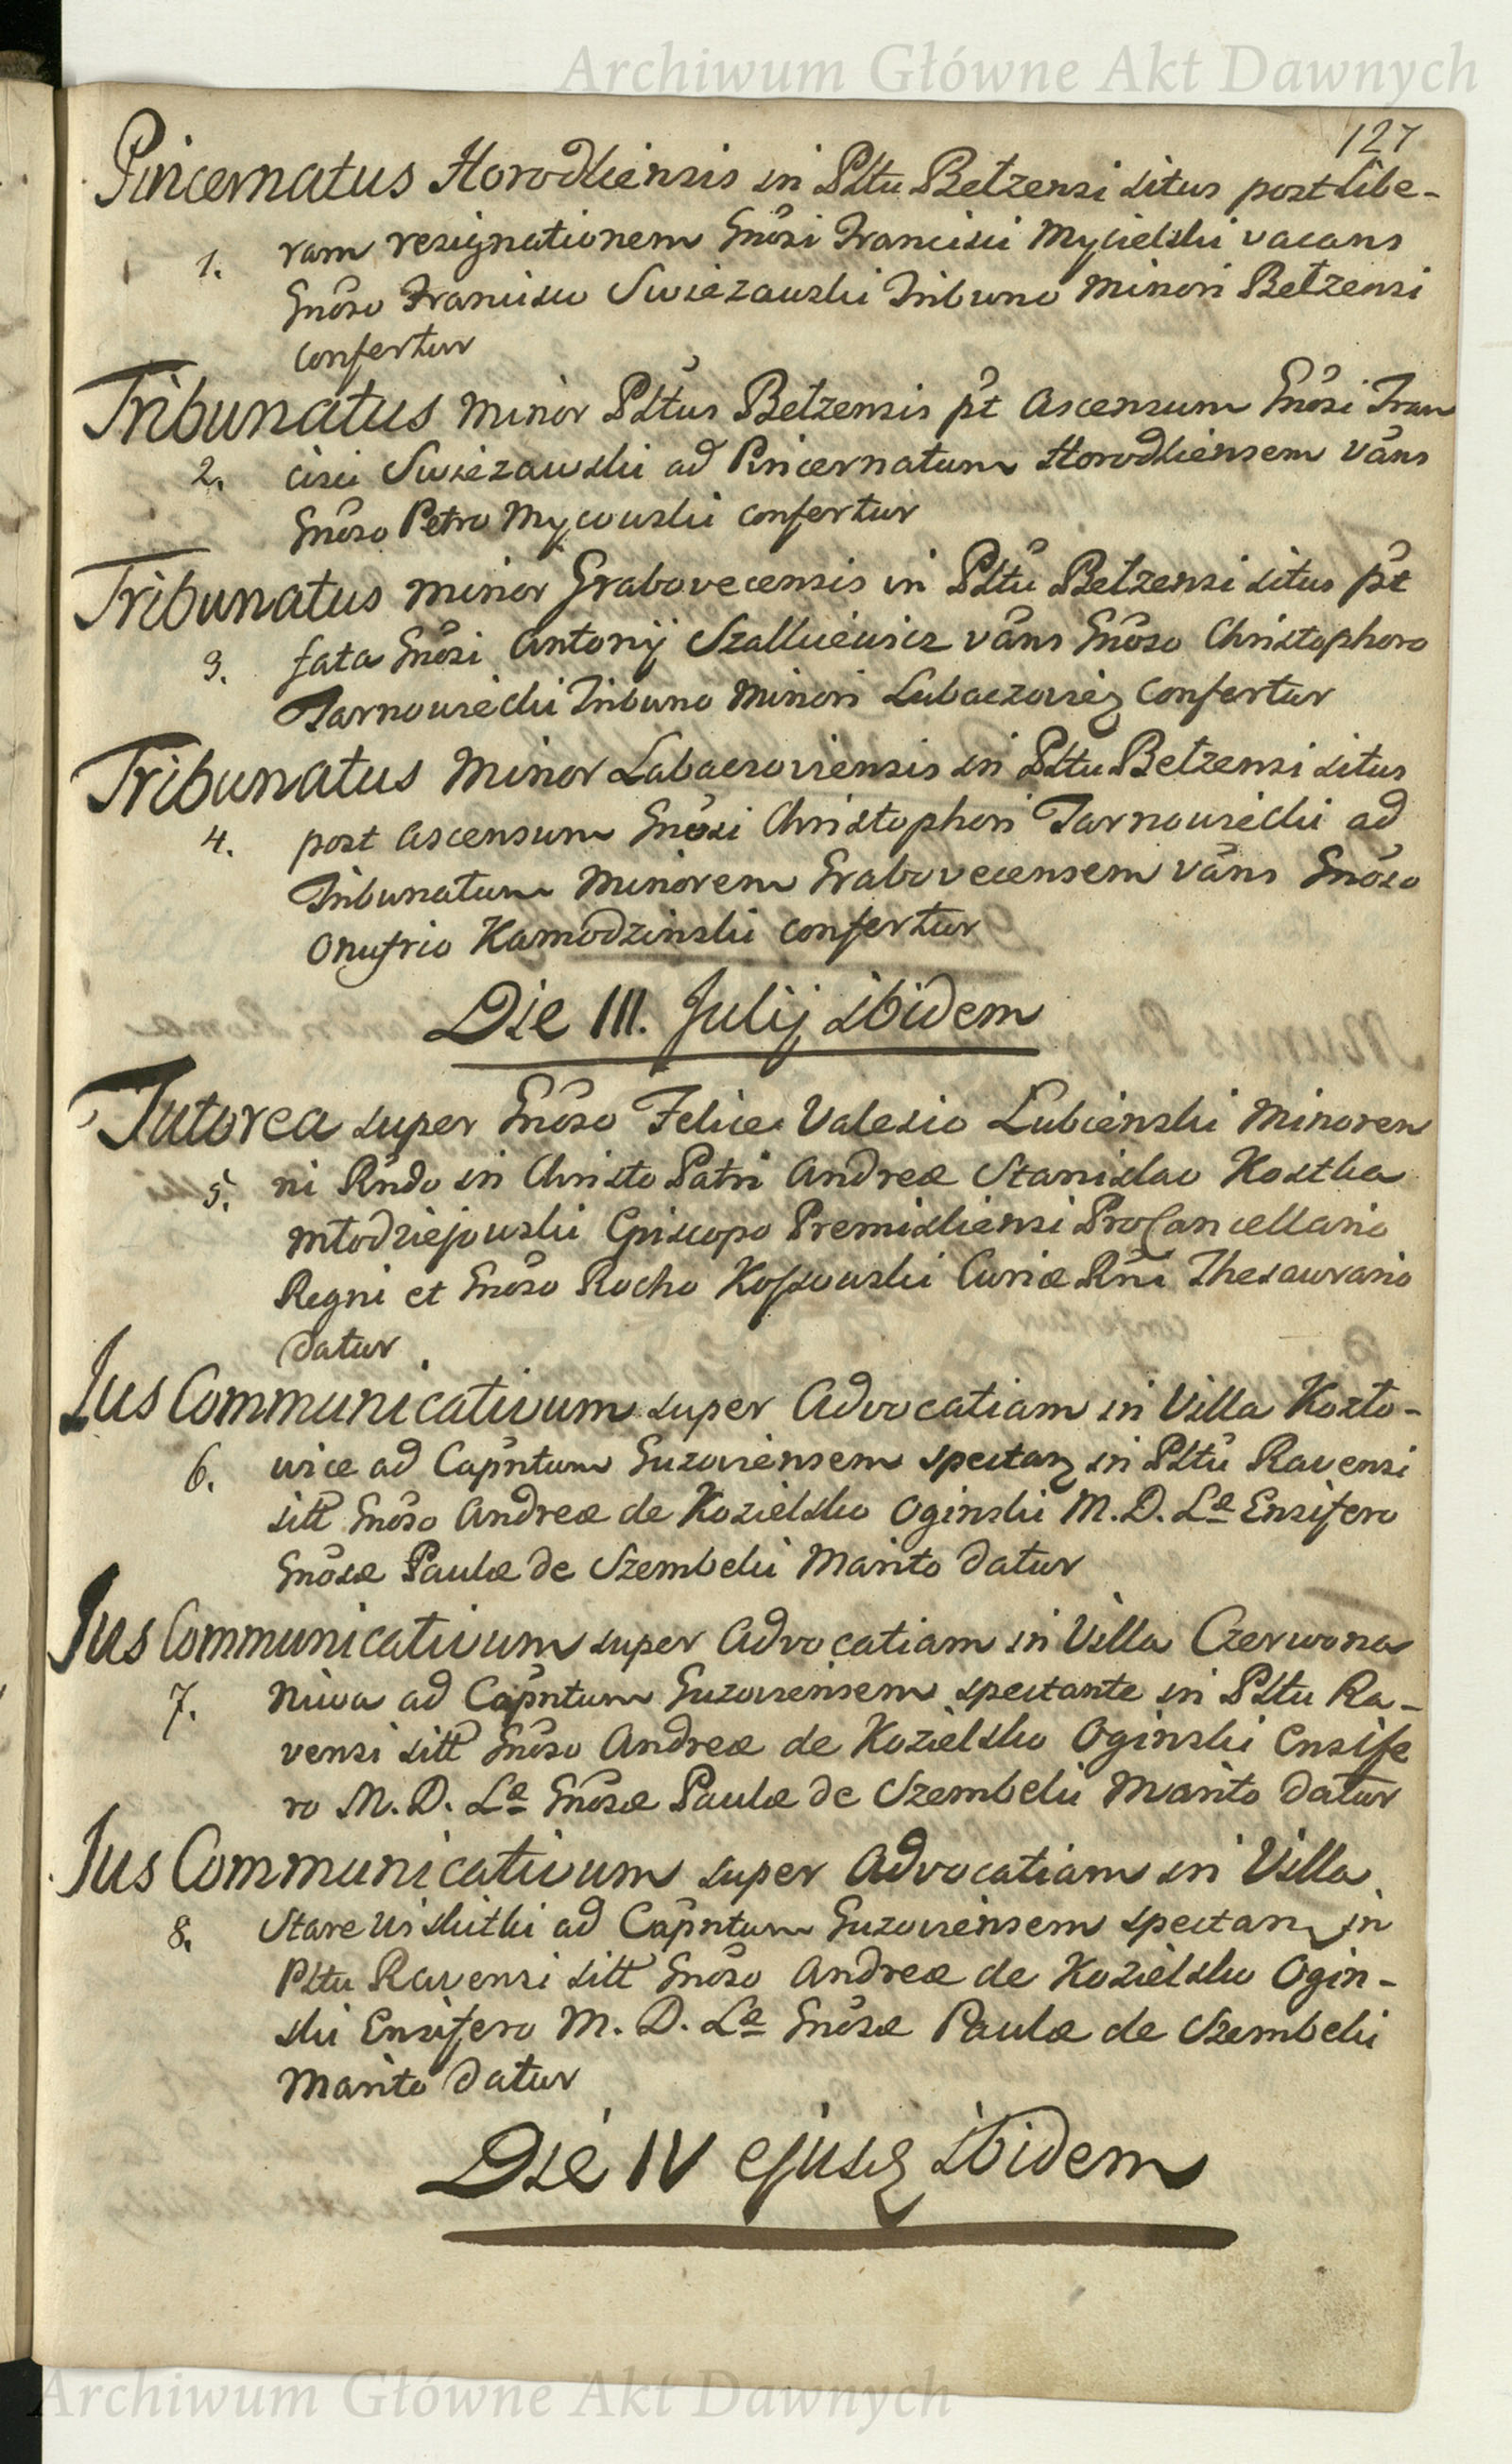 Archiwum Główne Akt Dawnych
127
Pincernatus Horodliensis in Pltu Belzensi situs post libe-
1. ram resignationem Gnosi Francisci Mycielski vacans
Gnoso Francisco Swiezawski Tribuno Minori Belzensi
confertur
Tribunatus Minor Pltus Belzensis pt Ascensum Gnosi Fran
2. cisci Swiezawski ad Pincernatum Horodliensem vãns
Gnoso Petro Mycowski confertur
Tribunatus Minor Grabovecensis in Pltu Belzensi situs pt
3. fata Gnosi Antonij Szallwiewicz vãns Gnoso Christophoro
Tarnowiecki Tribuno Minori Lubaczovieñ confertur
Tribunatus Minor Lubaczoviensis in Pltu Belzensi situs
4. post Ascensum Gnosi Christophori Tarnowiecki ad
Tribunatum Minorem Grabovecensem vãns Gnoso
Onufrio Kamodzinski confertur
Die III. Julij ibidem
Tutorea super Gnoso Felice Valesio Lubienski Minoren
5. ni Rndo in Christo Patri Andreæ Stanislao Kostka
Młodziejowski Episcopo Premisliensi ProCancellario
Regni et Gnoso Rocho Kossowski Curiæ Rni Thesaurario
datur.
Jus Communicativum super Advocatiam in Villa Kozło-
6. wice ad Capntum Guzoviensem spectan in Pltu Ravensi
sitt Gnoso Andreæ de Kozielsko Oginski M. D. Læ Ensifero
Gnosæ Paulæ de Szembeki Marito datur
Jus Communicativum super Advocatiam in Villa Czerwona
7. Niwa ad Capntum Guzoviensem spectante in Pltu Ra-
vensi sitt Gnoso Andreæ de Kozielsko Oginski Ensife
ro M. D. Læ Gnosæ Paulæ de Szembeki Marito datur
Jus Communicativum super Advocatiam in Villa
8. Stare Wiskitki ad Capntum Guzoviensem spectan in
Pltu Ravensi sitt Gnoso Andreæ de Kozielsko Ogin-
ski Ensifero M. D. Læ Gnosæ Paulæ de Szembeki
Marito datur
Die IV ejusd ibidem
Archiwum Główne Akt Dawnych